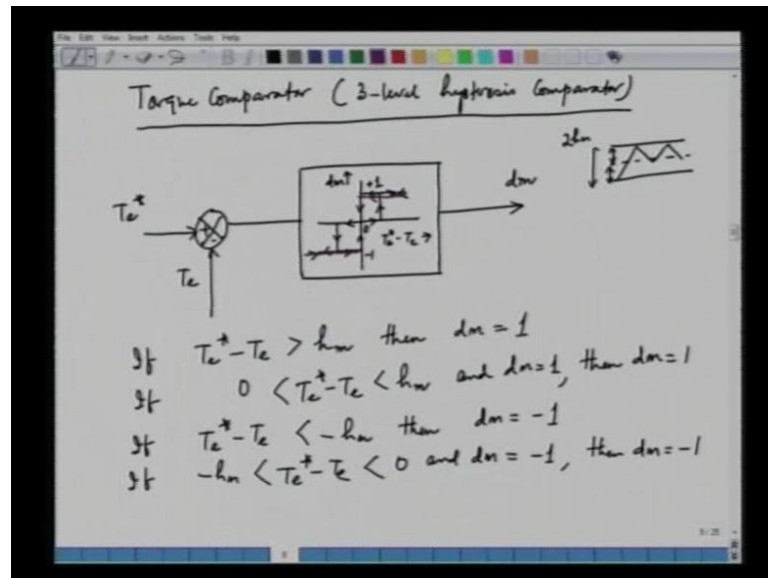 File Edit View Insert Actions Tools Help
Torque Comparator (3-level hysteresis Comparator)
2hm
dm↑ +1
dm
Te*
+
-
0
Te*-Te →
-1
Te
If Te*-Te > hm then dm = 1
If 0 < Te*-Te < hm and dm=1, then dm=1
If Te*-Te < -hm then dm = -1
If -hm < Te*-Te < 0 and dm = -1, then dm=-1